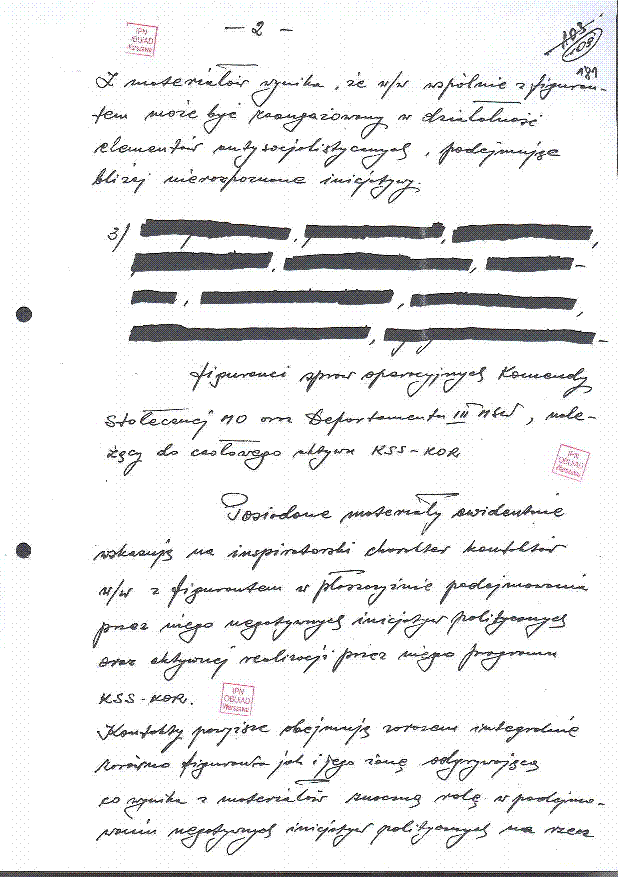 — 2 —
IPN
OBUiAD
Warszawa
103
109
181
Z materiałów wynika, że w/w wspólnie z figuran-
tem może być zaangażowany w działalność
elementów antysocjalistycznych, podejmując
bliżej nierozpoznane inicjatywy.
3/
figuranci spraw operacyjnych Komendy
Stołecznej MO oraz Departamentu III MSW, nale-
żący do czołowego aktywu KSS-KOR
IPN
OBUiAD
Warszawa
Posiadane materiały ewidentnie
wskazują na inspiratorski charakter kontaktów
w/w z figurantem w płaszczyźnie podejmowania
przez niego negatywnych inicjatyw politycznych
oraz aktywnej realizacji przez niego programu
KSS-KOR.
IPN
OBUiAD
Warszawa
Kontakty powyższe obejmują zarazem integralnie
zarówno figuranta jak i jego żonę odgrywającą
co wynika z materiałów znaczną rolę w podejmo-
waniu negatywnych inicjatyw politycznych na rzecz